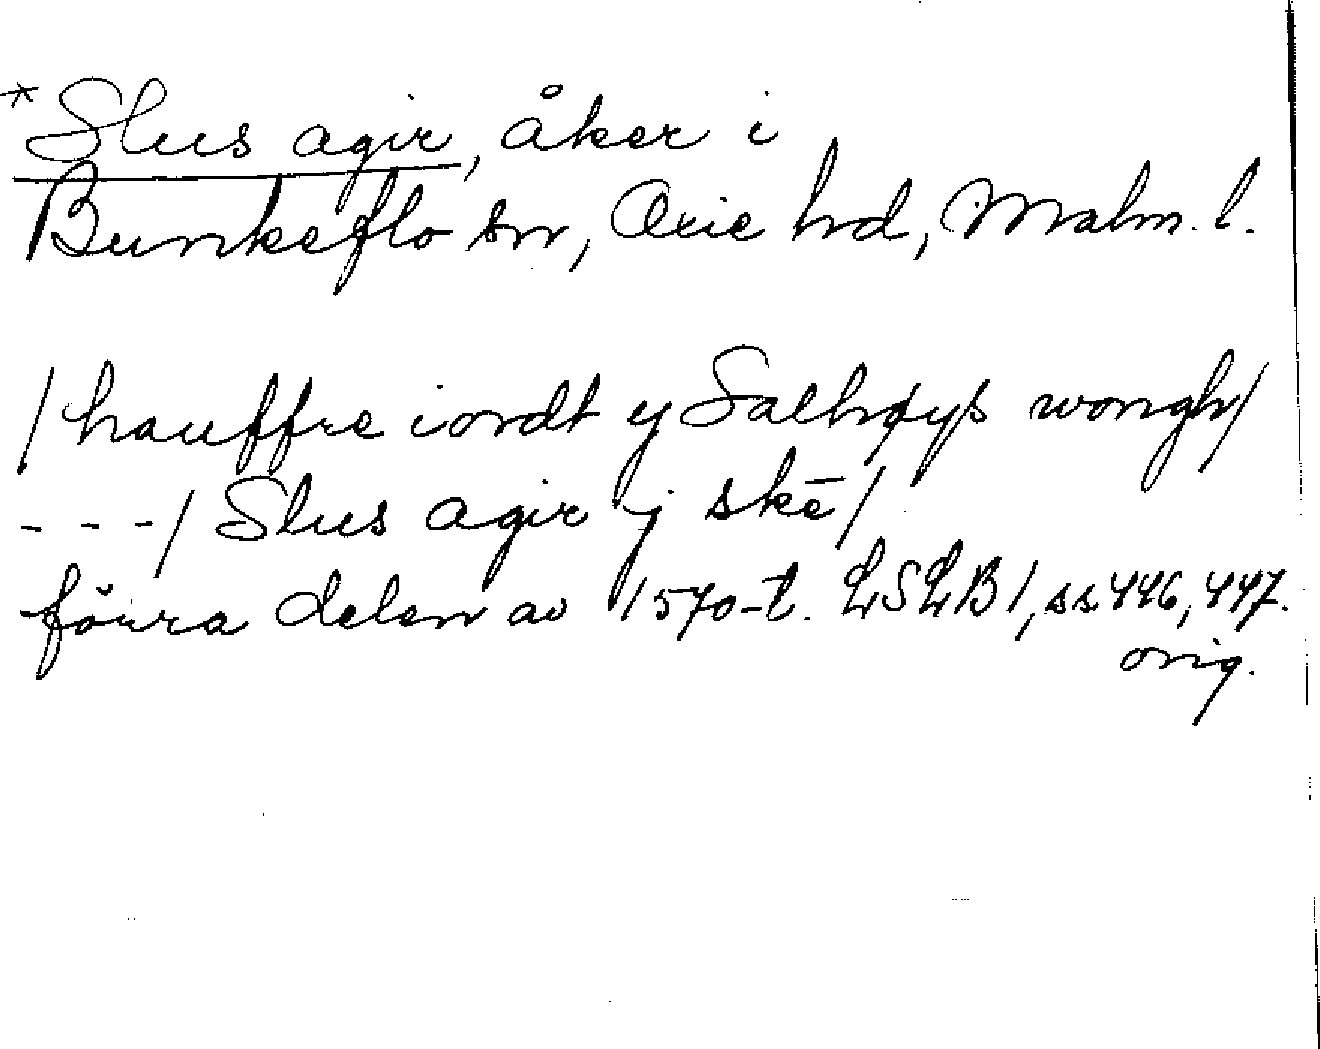 *Slus agir, åker i
Bunkeflo sn, Oxie hd, Malm. l.
/hauffre iordt y Salhøys wongh/
- - -/ Slus agir y skē/
förra delen av 1570-t. LSLB 1, ss 446, 447.
orig.